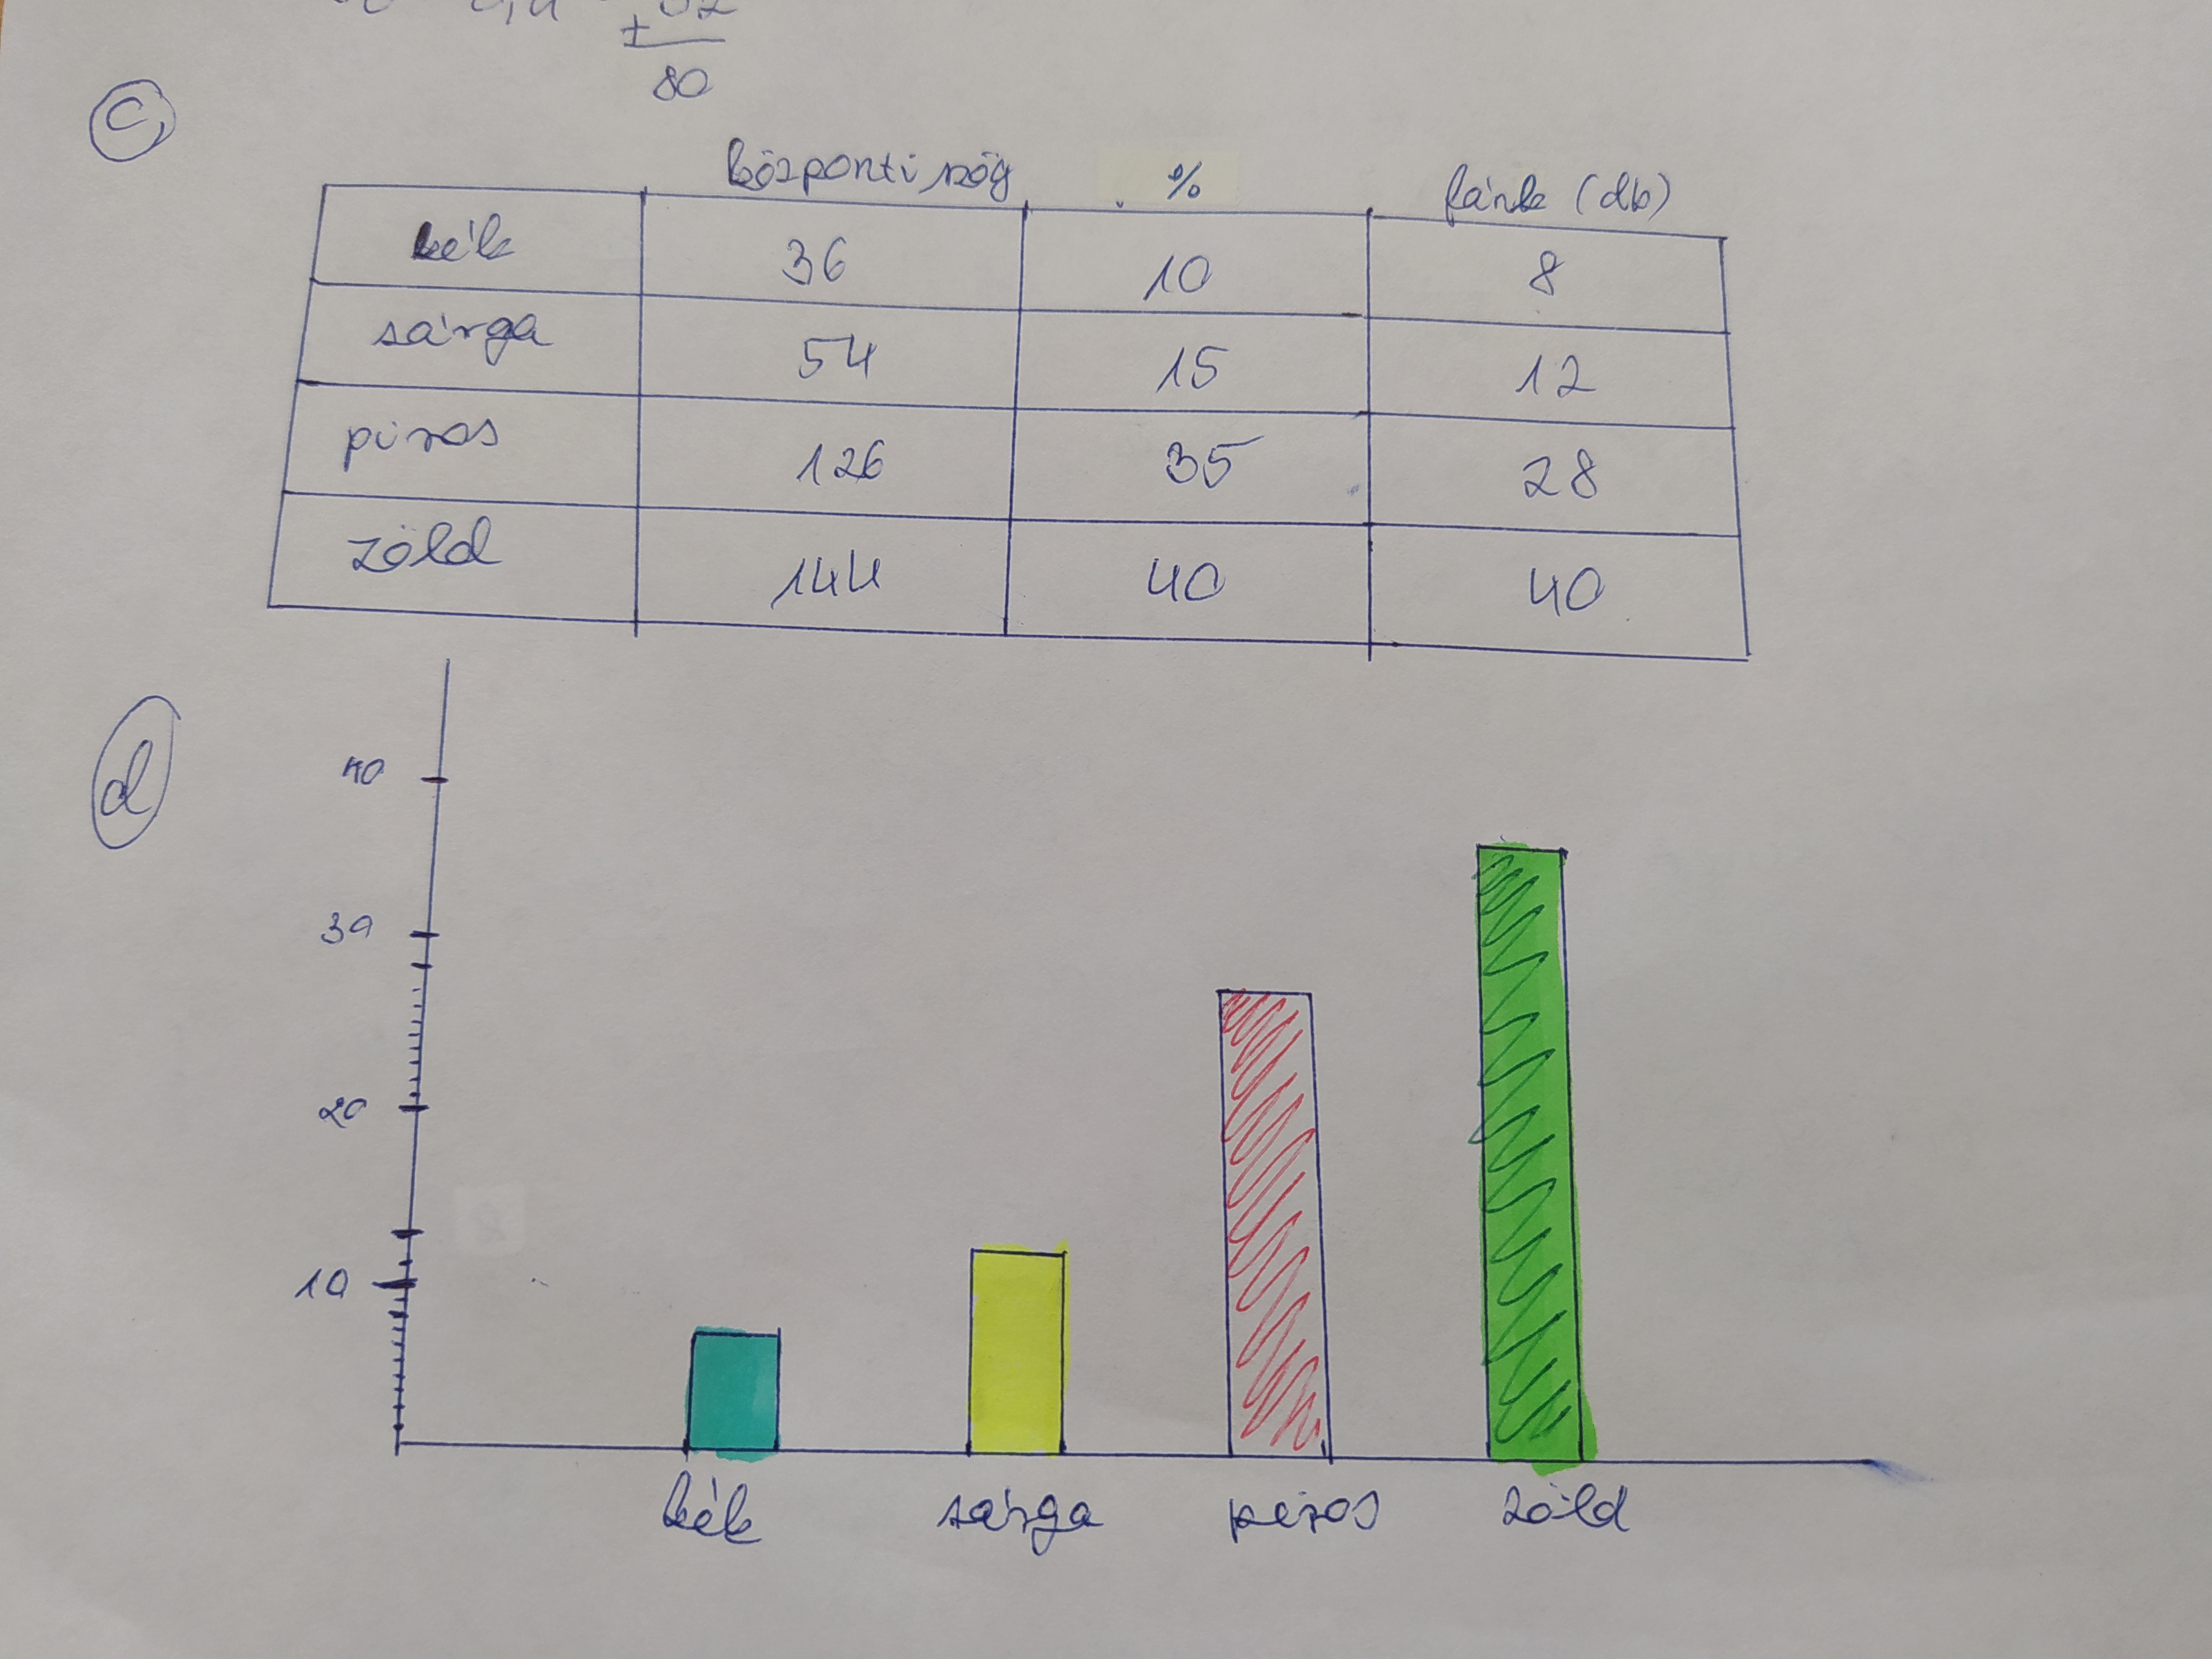 80
c,
központi szög % fánk (db)
kék 36 10 8
sárga 54 15 12
piros 126 35 28
zöld 144 40 40
d
40
30
20
10
kék sárga piros zöld